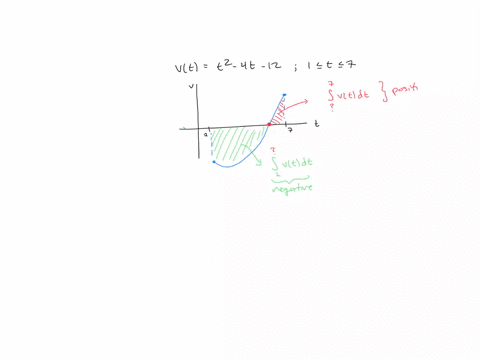 v(t) = t²-4t-12 ; 1≤t≤7
v
7
∫ v(t)dt } positi
?
2 7 t
?
∫ v(t)dt
2
negative